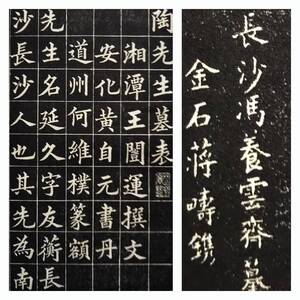 陶先生墓表
湘潭王闓運撰文
安化黃自元書丹
道州何維樸篆額
先生名延久字友蘅長
沙長沙人也其先為南
長沙馮養雲齊
金石蔣疇鐫